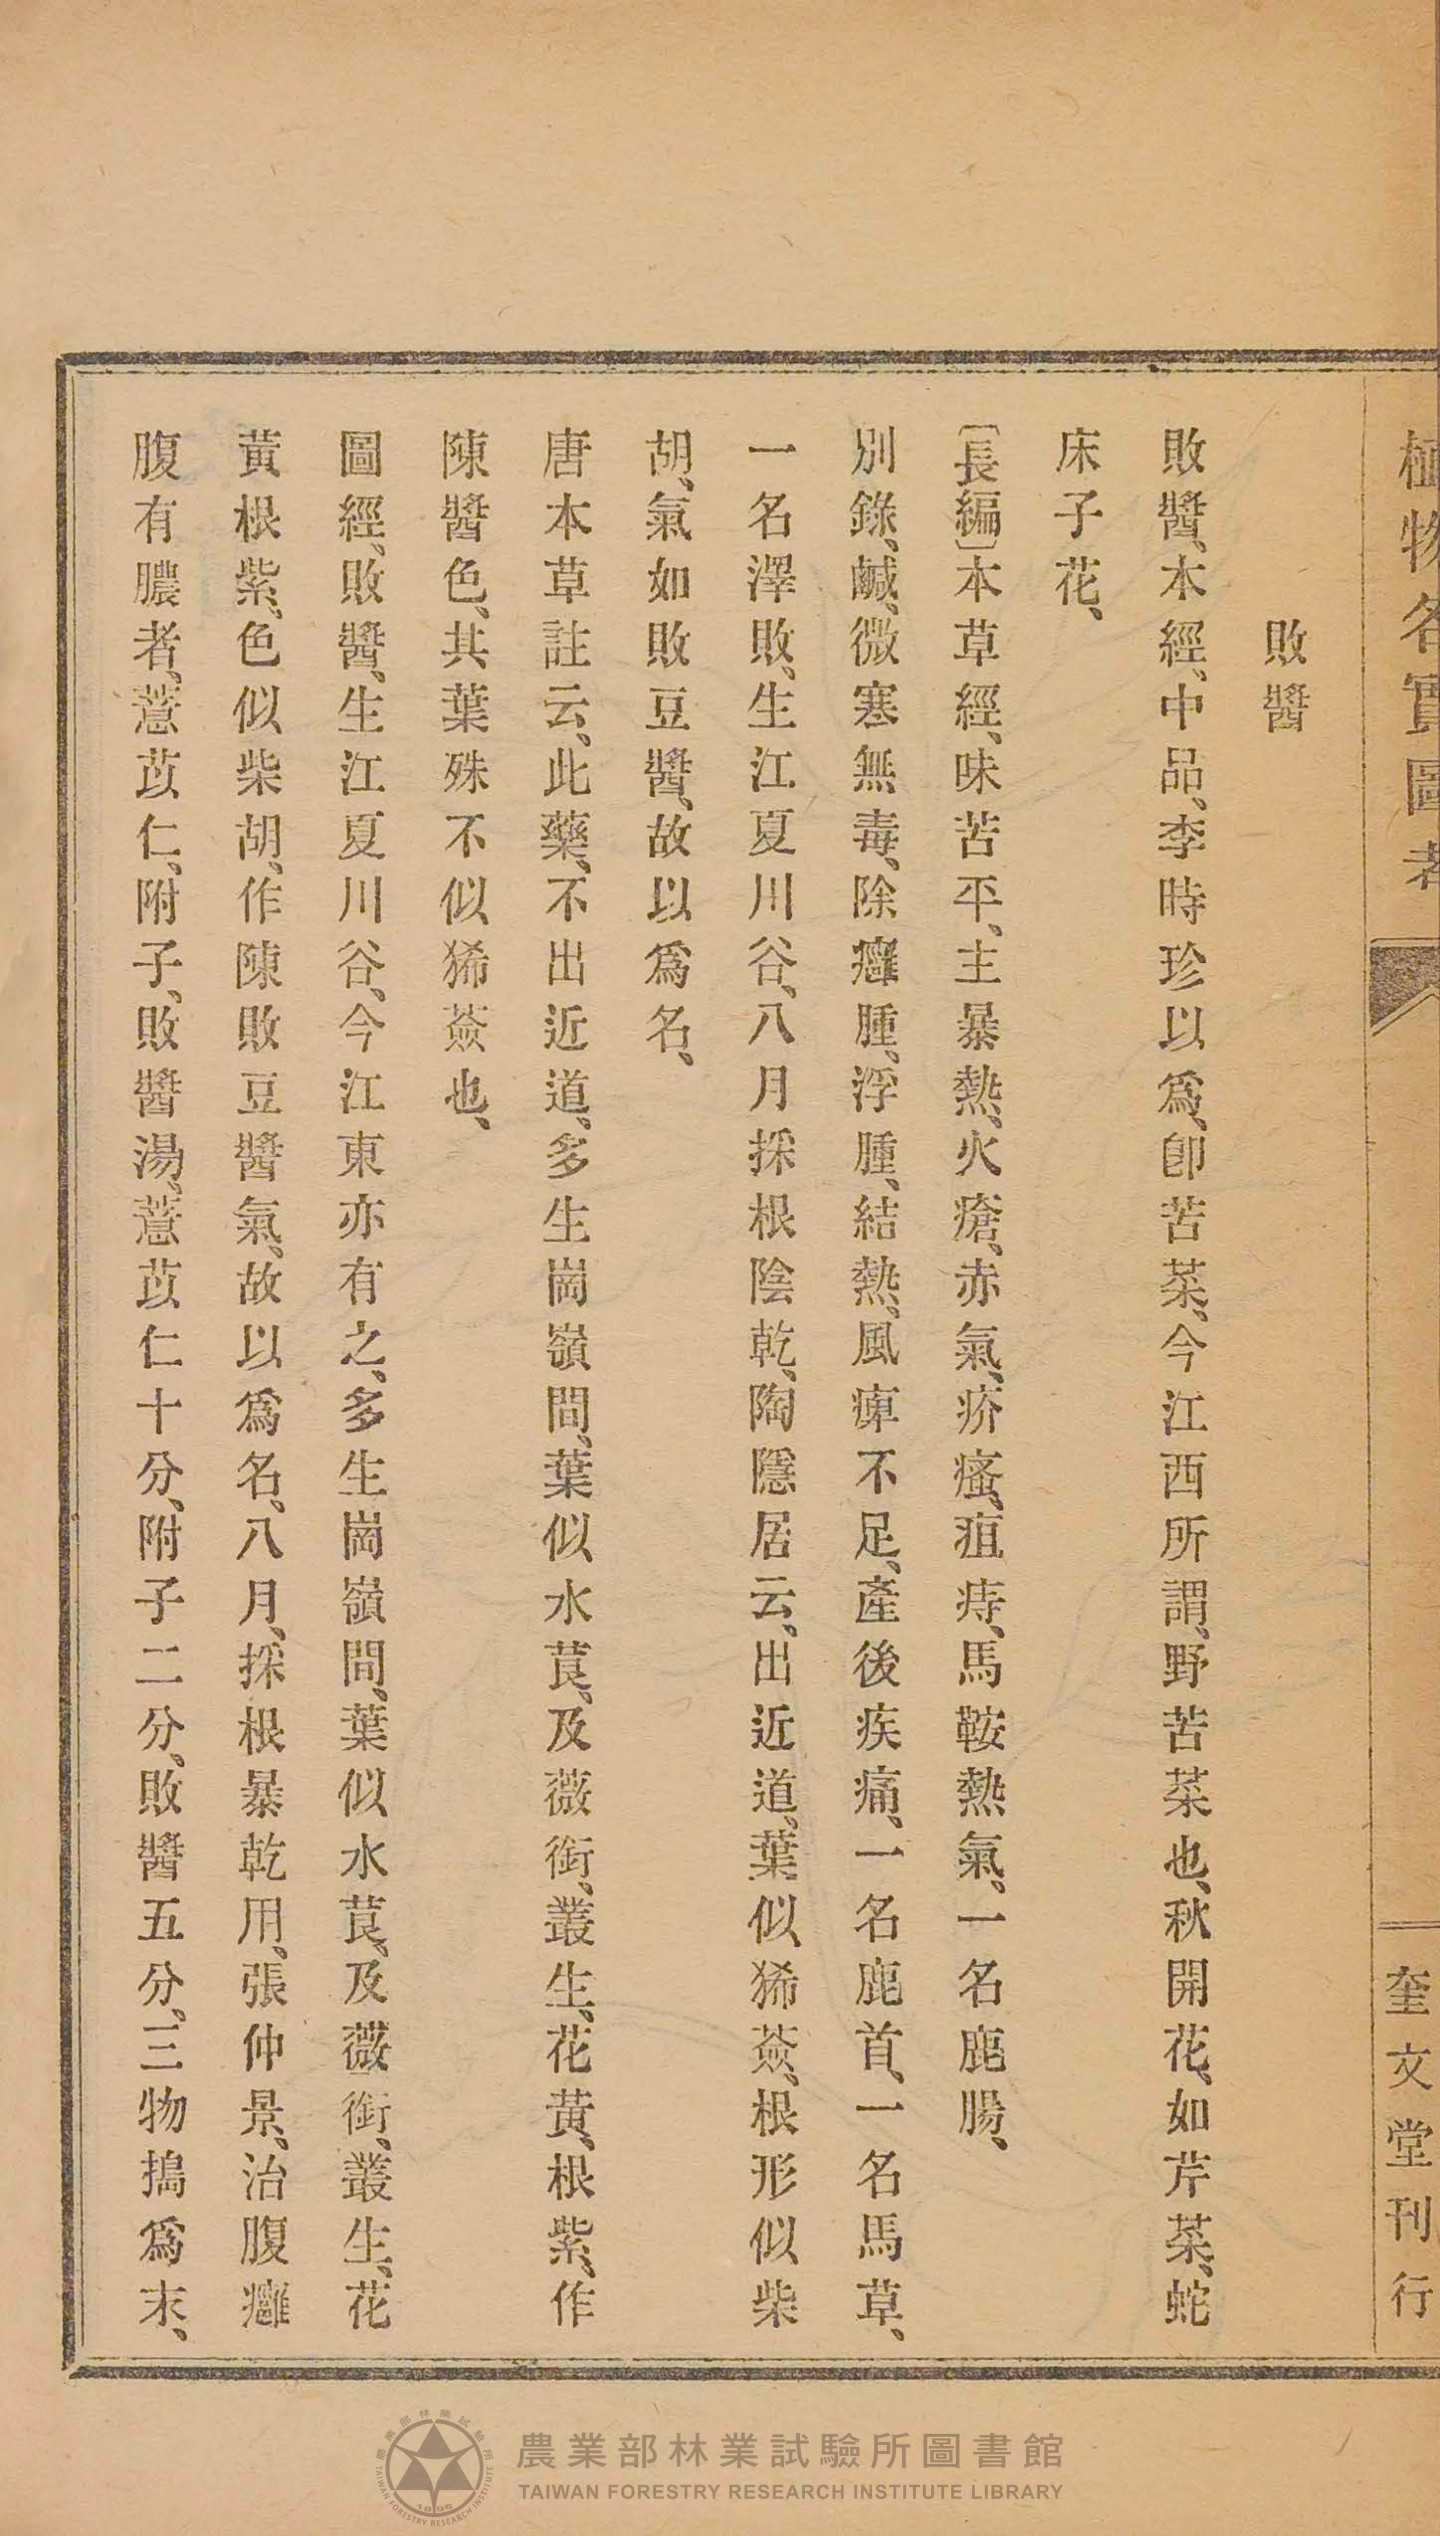 植物名實圖考
奎文堂刊行
敗醬
敗醬、本經、中品、李時珍以爲、卽苦菜、今江西所謂、野苦菜也、秋開花、如芹菜、蛇
床子花、
〔長編〕本草經、味苦平、主暴熱、火瘡、赤氣、疥瘙、疽痔、馬鞍熱氣、一名鹿腸、
別錄、鹹、微寒無毒、除癰腫、浮腫、結熱、風痺不足、產後疾痛、一名鹿首、一名馬草、
一名澤敗、生江夏川谷、八月採根陰乾、陶隱居云、出近道、葉似、狶薟、根形似柴
胡、氣如敗豆醬、故以爲名、
唐本草註云、此藥、不出近道、多生崗嶺間、葉似水莨、及薇銜、叢生、花黃、根紫、作
陳醬色、其葉殊不似狶薟也、
圖經、敗醬、生江夏川谷、今江東亦有之、多生崗嶺間、葉似水莨、及薇銜、叢生、花
黃根紫、色似柴胡、作陳敗豆醬氣、故以爲名、八月、採根暴乾用、張仲景、治腹癰
腹有膿者、薏苡仁、附子、敗醬湯、薏苡仁十分、附子二分、敗醬五分、三物搗爲末、
農業部林業試驗所圖書館
TAIWAN FORESTRY RESEARCH INSTITUTE LIBRARY
農業部林業試驗所
TAIWAN FORESTRY RESEARCH INSTITUTE
1895